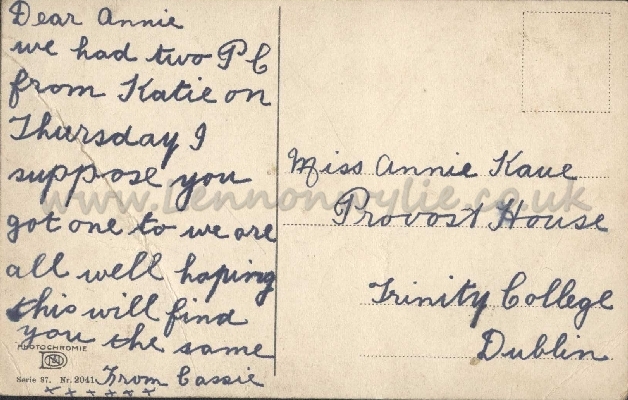 Dear Annie
we had two PC
from Katie on
Thursday I
suppose you
got one to we are
all well hoping
this will find
you the same
From Cassie
x x x x x x
PHOTOCHROMIE
Serie 97. Nr. 2041
Miss Annie Kane
Provost House
Trinity College
Dublin.
www.Lennonwylie.co.uk